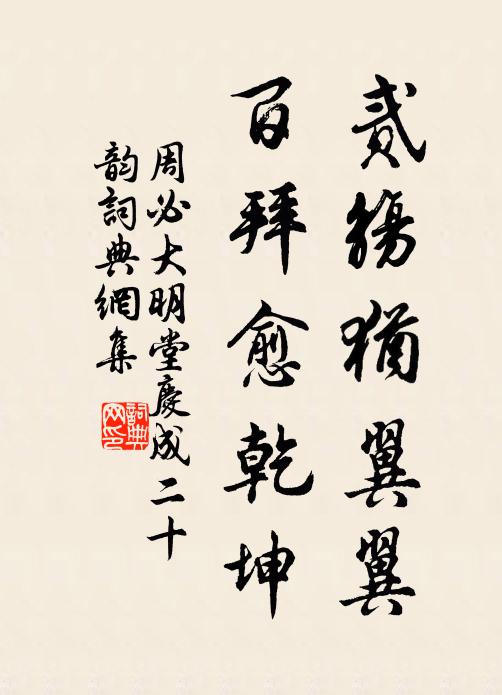 貳觴猶翼翼
百拜愈乾坤
周必大明堂慶成二十
韵詞典網集
詞典網印